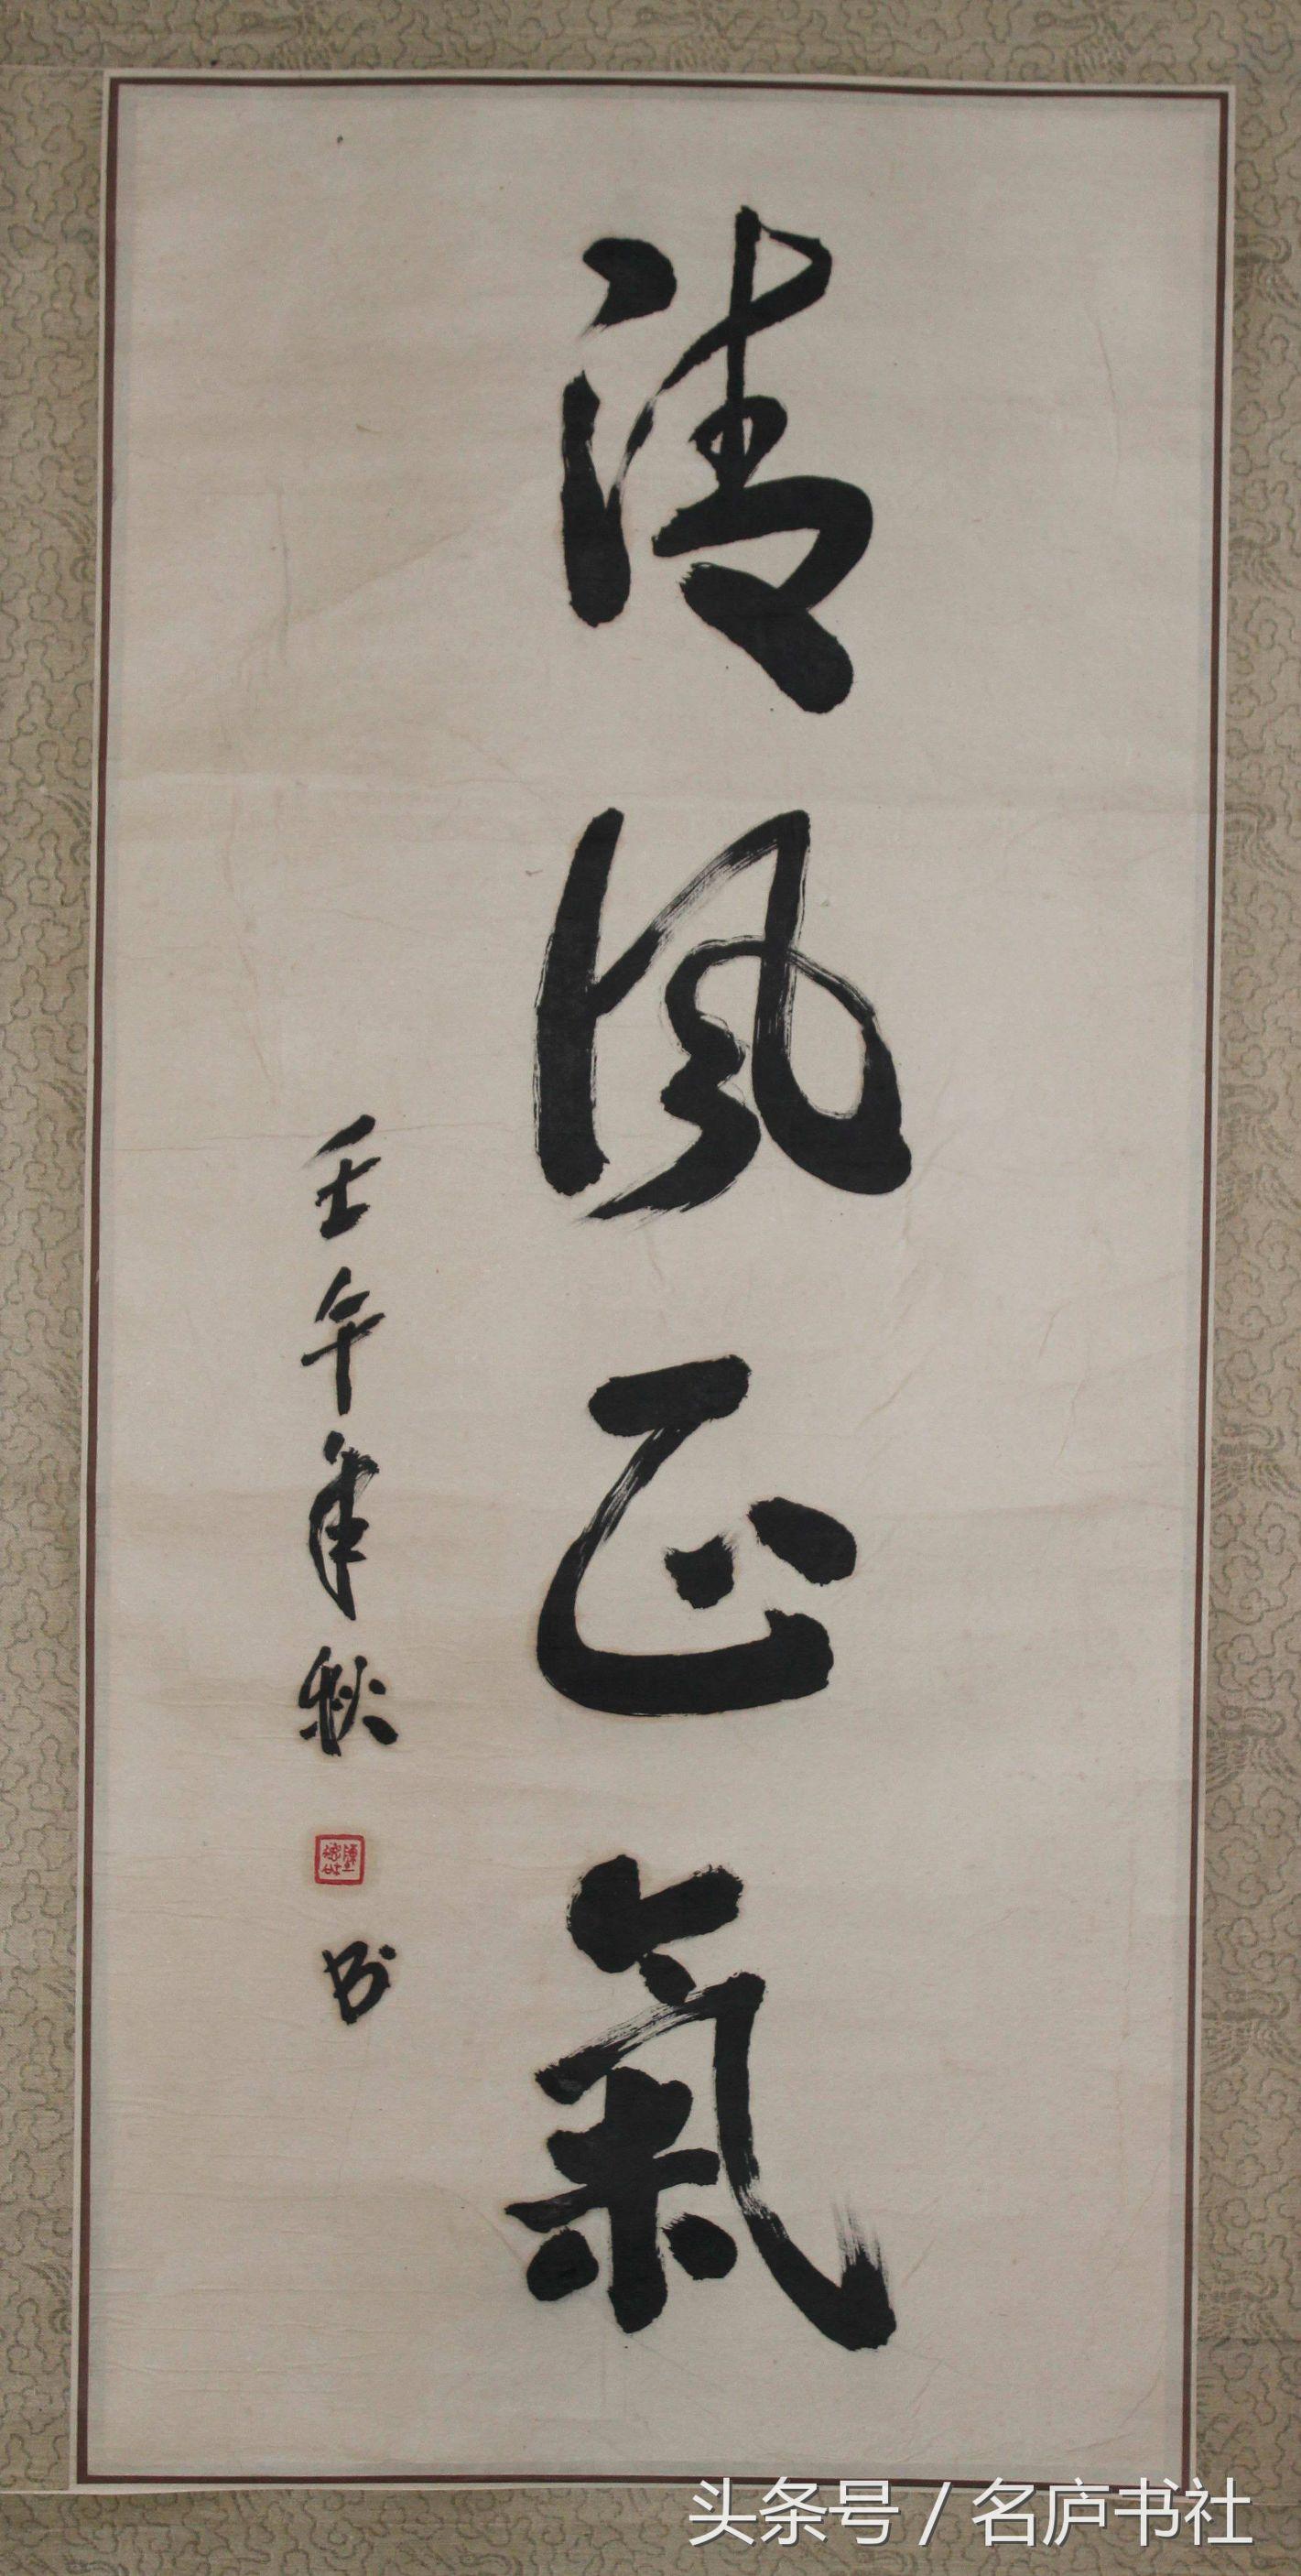 清风正氣
壬午年秋
书
头条号 / 名庐书社